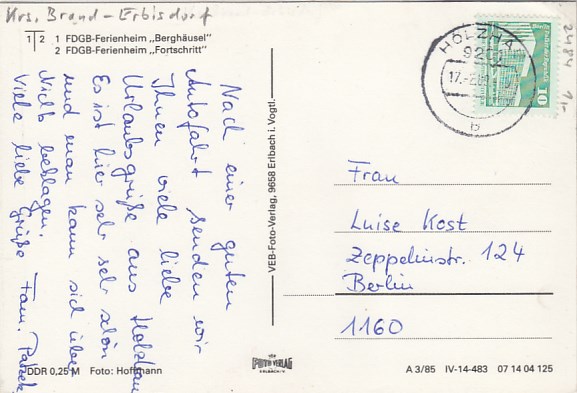 Krs. Brand-Erbisdorf
2 1 FDGB-Ferienheim „Berghäusel“
2 FDGB-Ferienheim „Fortschritt“
Nach einer guten
Autofahrt senden wir
Ihnen viele liebe
Urlaubsgrüße aus Holzhau
Es ist hier sehr sehr schön
und man kann sich über
nichts beklagen.
Viele liebe Grüße Fam.
VEB-Foto-Verlag, 9658 Erlbach i. Vogtl.
HOLZHAU
17.-2
b
10
2484 1,-
Frau
Luise Kost
Zeppelinstr. 124
Berlin
1160
DDR 0,25 M Foto: Hoffmann
FOTO VERLAG
ERLBACH/V
A 3/85 IV-14-483 07 14 04 125